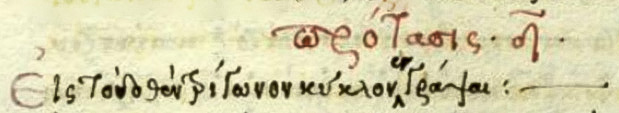 πρότασις · δ̄ ·
Εἰς τὸ δοθὲν τρίγωνον κύκλον ἐγγράψαι : —